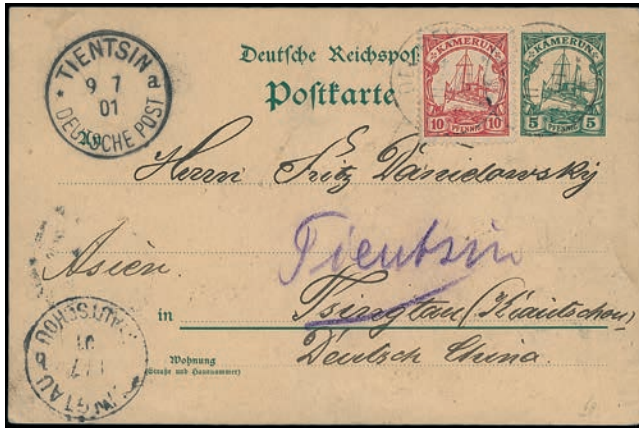 TIENTSIN
a
9 7
01
DEUTSCHE POST
Deutsche Reichspost
Postkarte
KAMERUN
10 PFENNIG 10
KAMERUN
5 PFENNIG 5
An
Herrn Fritz Danidowsky
Tientsin
Asien.
in Tsingtau (Kiautschou)
Deutsch China.
Wohnung
(Straße und Hausnummer)
KIAUTSCHOU
01
TSINGTAU